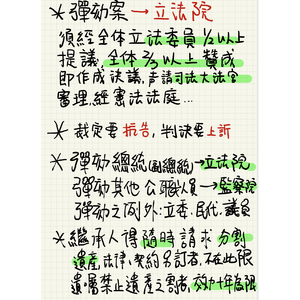 * 彈劾案 → 立法院
須經全体立法委員 1/2 以上
提議,全体 2/3 以上 贊成
即作成決議,聲請司法大法官
審理,經憲法法庭...
* 裁定要抗告,判決要上訴
* 彈劾總統(副總統)→立法院
彈劾其他公職人員→監察院
彈劾之例外:立委、民代、議員
* 繼承人得隨時請求分割
遺產,法律、契約另訂者,不在此限
遺囑禁止遺產之割者,效力十年為限